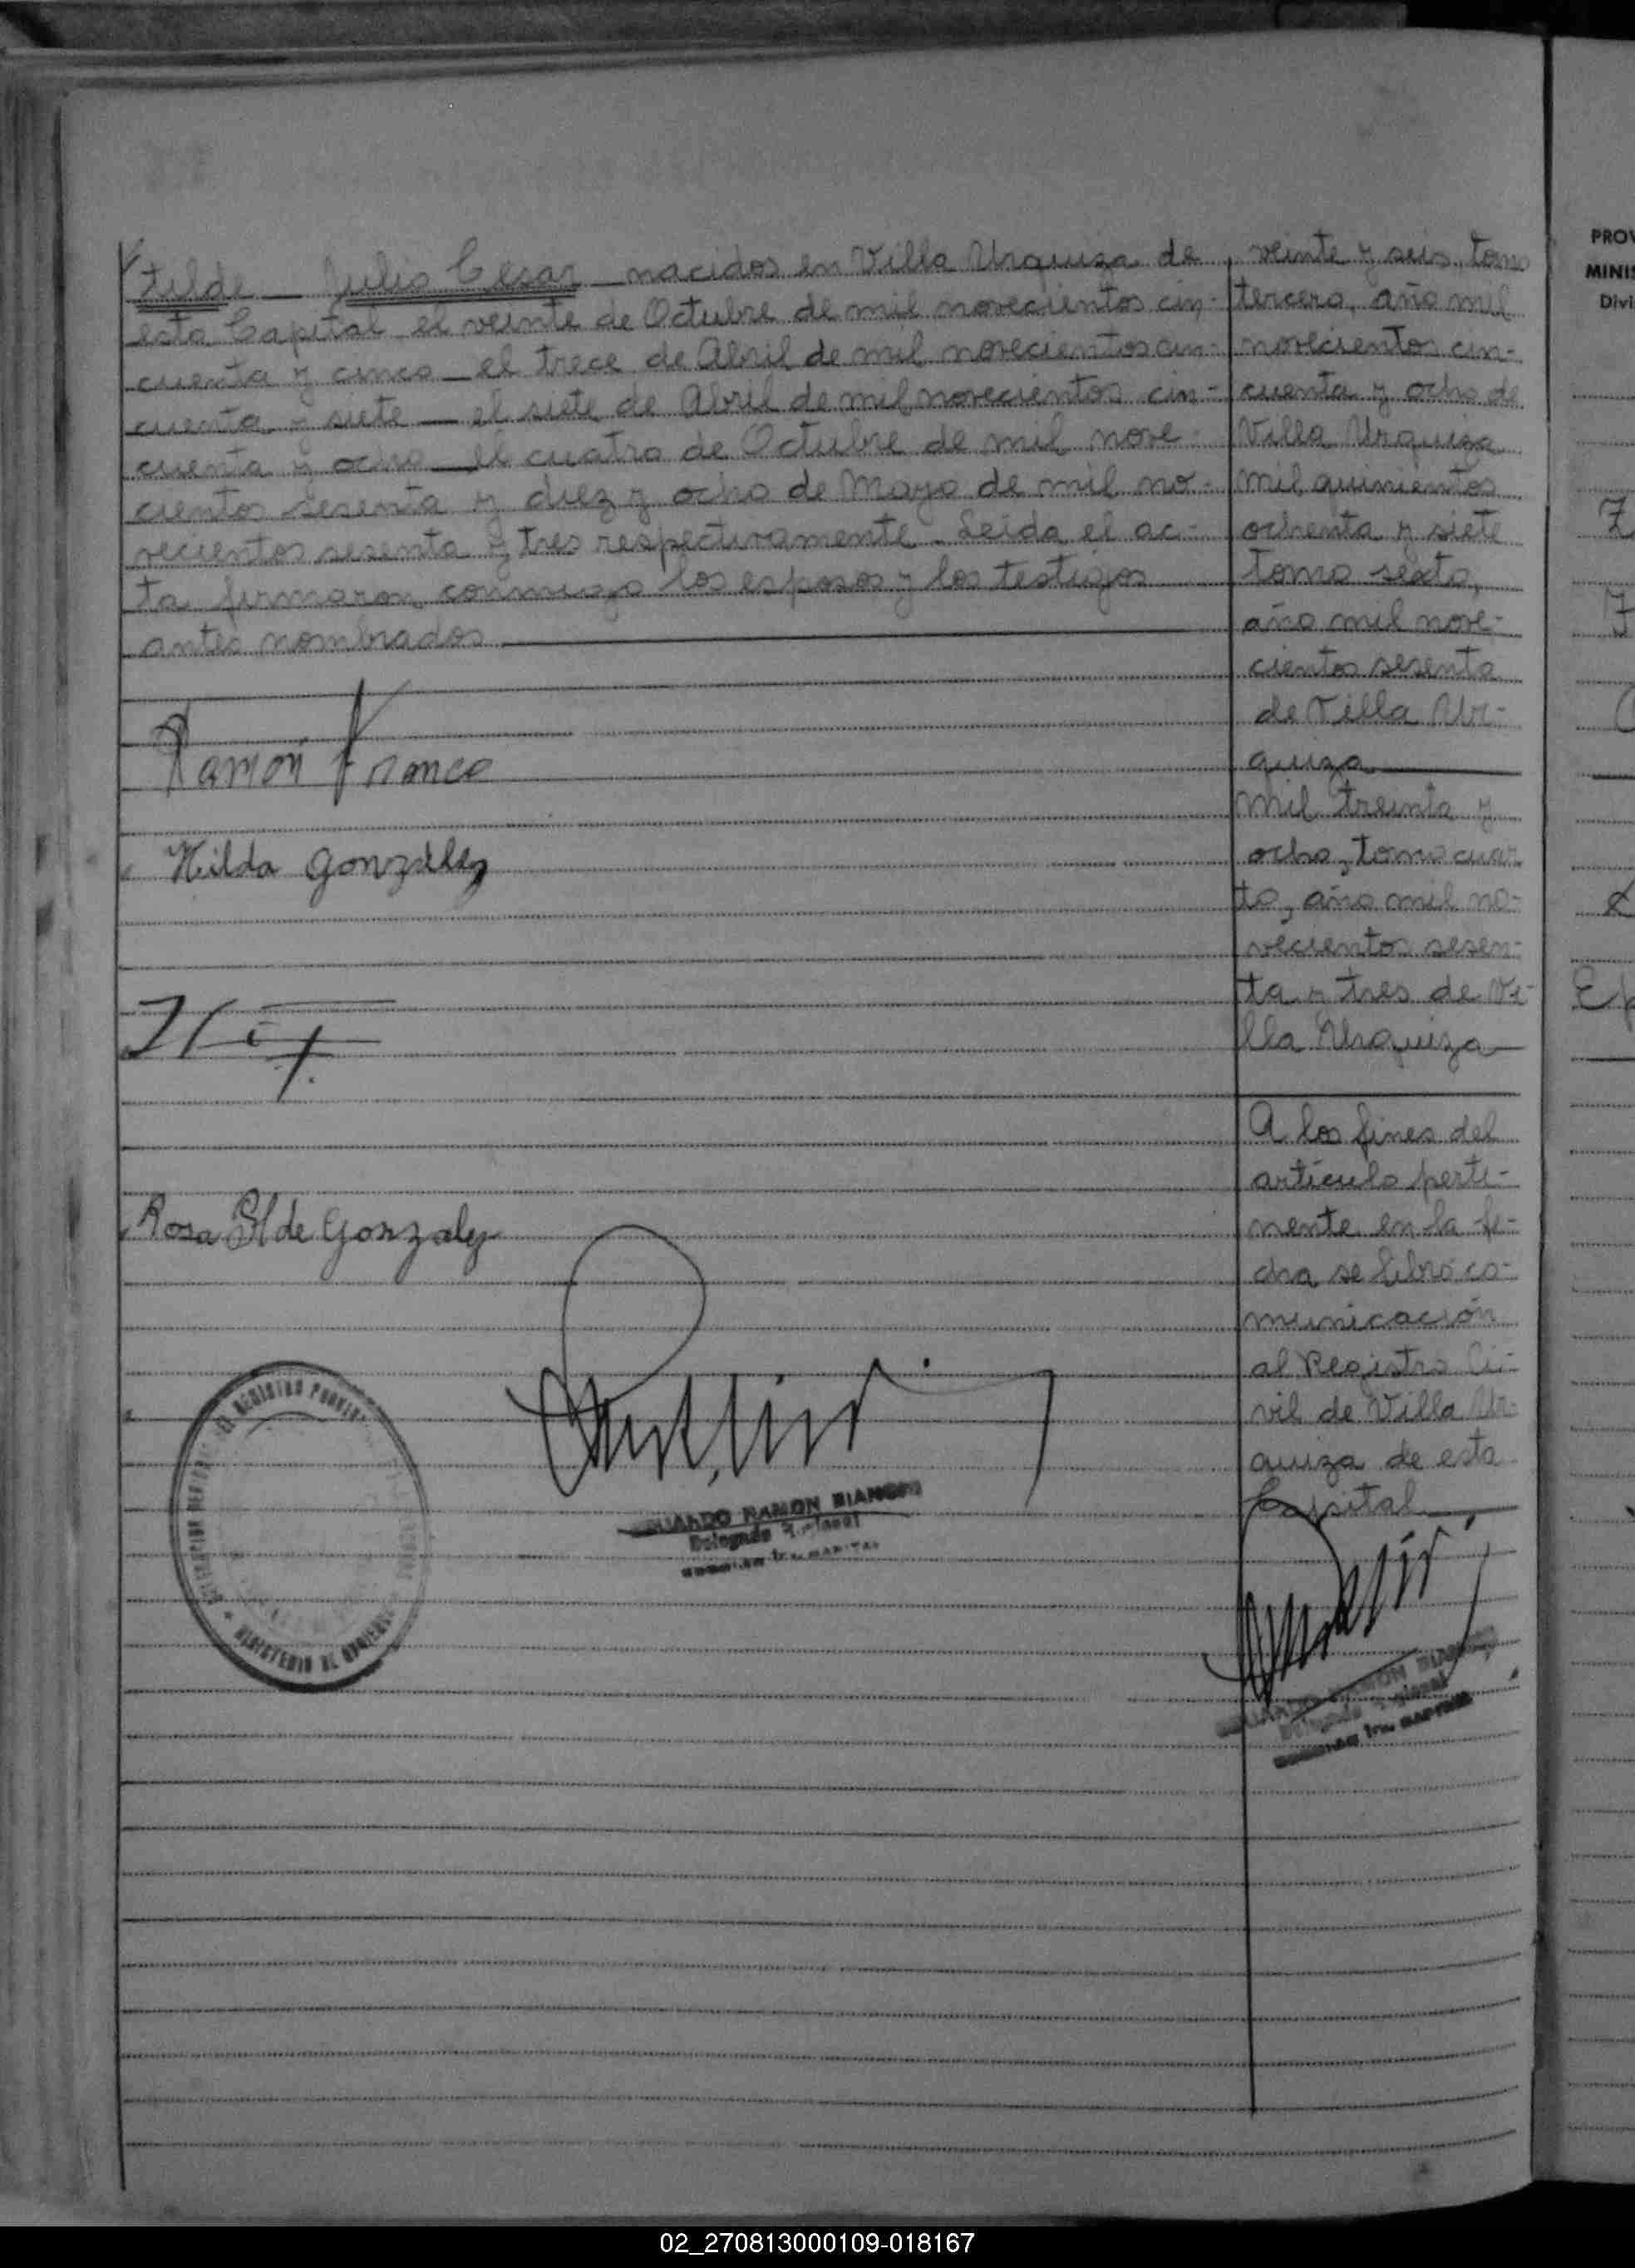 tilde — Julio Cesar — nacidos en Villa Urquiza de
esta Capital el veinte de Octubre de mil novecientos cin-
cuenta y cinco — el trece de Abril de mil novecientos cin-
cuenta y siete — el siete de Abril de mil novecientos cin-
cuenta y ocho — el cuatro de Octubre de mil nove-
cientos sesenta y diez y ocho de Mayo de mil no-
vecientos sesenta y tres respectivamente. Leida el ac-
ta firmaron conmigo los esposos y los testigos
antes nombrados
Ramón Franco
Hilda Gonzalez
Rosa de Gonzalez
EDUARDO RAMON BIANCHI
Delegado
veinte y seis, tomo
tercero, año mil
novecientos cin-
cuenta y ocho de
Villa Urquiza
mil quinientos
ochenta y siete
tomo sexto,
año mil nove-
cientos sesenta
de Villa Ur-
quiza
mil treinta y
ocho, tomo cuar-
to, año mil no-
vecientos sesen-
ta y tres de Vi-
lla Urquiza
A los fines del
artículo perti-
nente en la fe-
cha se libró co-
municación
al Registro Ci-
vil de Villa Ur-
quiza de esta
Capital
EDUARDO RAMON BIANCHI
Delegado
PROV
MINIS
Divi
02_270813000109-018167